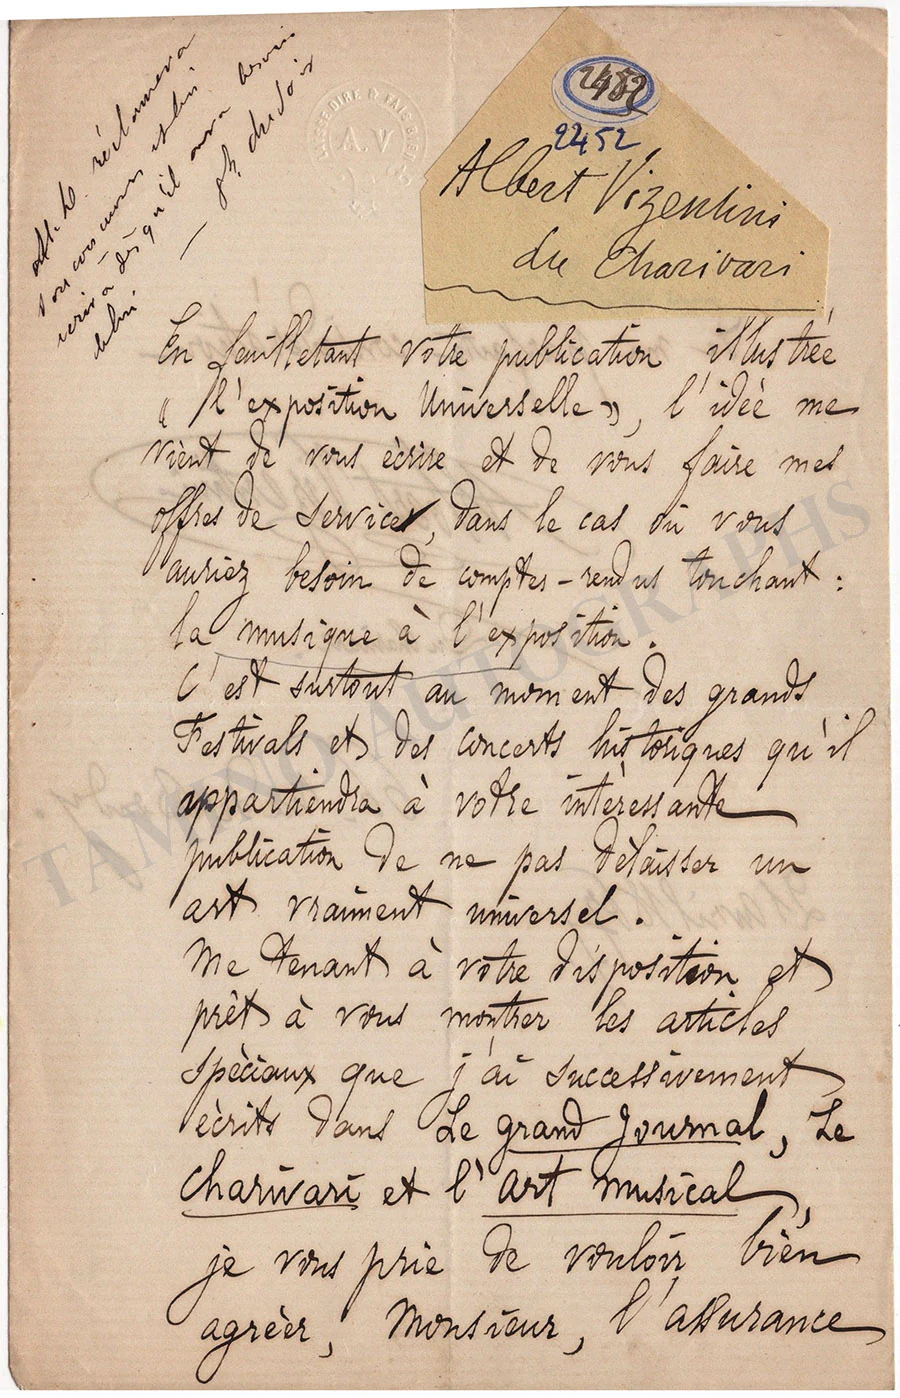 réclamera
dès qu'il aura besoin
2452
2452
Albert Vizentini
du Charivari
A.V
En feuilletant votre publication illustrée
« l'exposition Universelle », l'idée me
vient de vous écrire et de vous faire mes
offres de service, dans le cas où vous
auriez besoin de comptes-rendus touchant :
la musique à l'exposition.
C'est surtout au moment des grands
Festivals et des concerts historiques qu'il
appartiendra à votre intèressante
publication de ne pas délaisser un
art vraiment universel.
Me tenant à votre disposition et
prèt à vous montrer les articles
spèciaux que j'ai successivement
ècrits dans Le grand Journal, Le
Charivari et l'art musical,
je vous prie de vouloir bien
agrèer, Monsieur, l'assurance
TAMINO AUTOGRAPHS